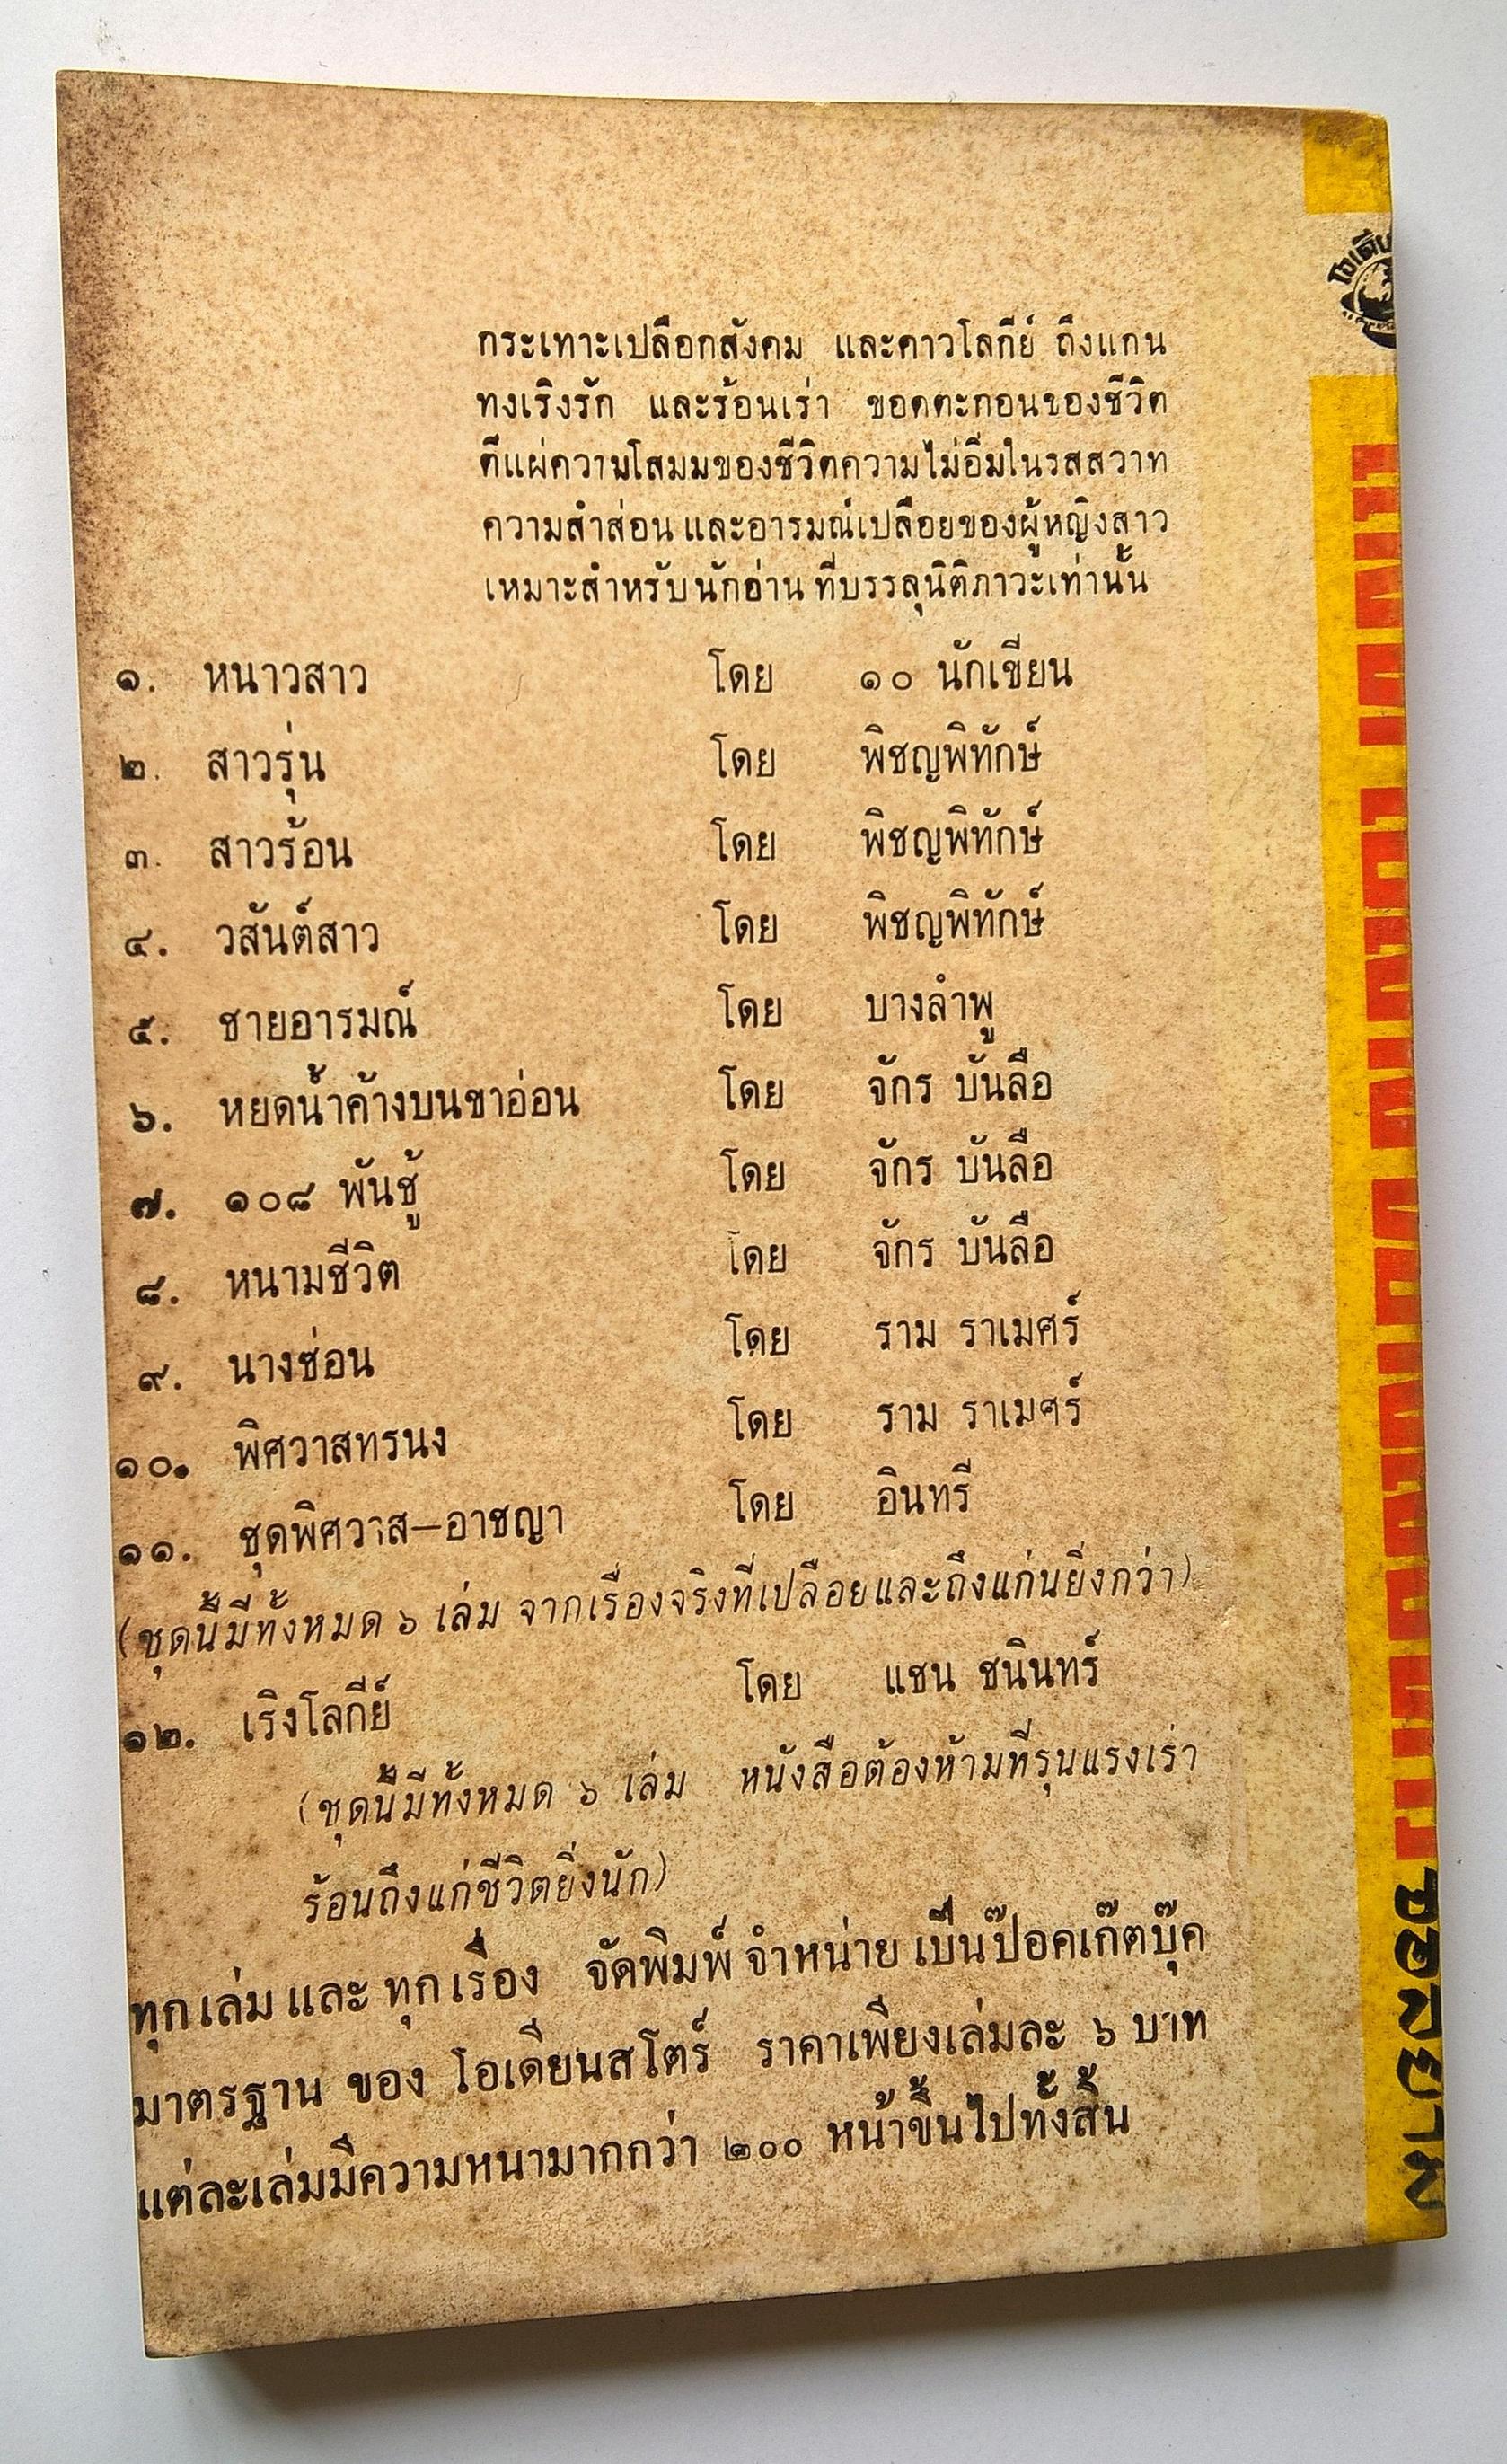 กระเทาะเปลือกสังคม และคาวโลกีย์ ถึงแกน
ทงเริงรัก และร้อนเร่า ขอดตะกอนของชีวิต
ตีแผ่ความโสมมของชีวิตความไม่อิ่มในรสสวาท
ความสำส่อน และอารมณ์เปลือยของผู้หญิงสาว
เหมาะสำหรับนักอ่าน ที่บรรลุนิติภาวะเท่านั้น
๑. หนาวสาว โดย ๑๐ นักเขียน
๒. สาวรุ่น โดย พิชญพิทักษ์
๓. สาวร้อน โดย พิชญพิทักษ์
๔. วสันต์สาว โดย พิชญพิทักษ์
๕. ชายอารมณ์ โดย บางลำพู
๖. หยดน้ำค้างบนขาอ่อน โดย จักร บันลือ
๗. ๑๐๘ พันชู้ โดย จักร บันลือ
๘. หนามชีวิต โดย จักร บันลือ
๙. นางซ่อน โดย ราม ราเมศร์
๑๐. พิศวาสทรนง โดย ราม ราเมศร์
๑๑. ชุดพิศวาส–อาชญา โดย อินทรี
(ชุดนี้มีทั้งหมด ๖ เล่ม จากเรื่องจริงที่เปลือยและถึงแก่นยิ่งกว่า)
๑๒. เริงโลกีย์ โดย แชน ชนินทร์
(ชุดนี้มีทั้งหมด ๖ เล่ม หนังสือต้องห้ามที่รุนแรงเร่า
ร้อนถึงแก่ชีวิตยิ่งนัก)
ทุกเล่ม และ ทุกเรื่อง จัดพิมพ์ จำหน่าย เป็นป๊อคเก๊ตบุ๊ค
มาตรฐาน ของ โอเดียนสโตร์ ราคาเพียงเล่มละ ๖ บาท
แต่ละเล่มมีความหนามากกว่า ๒๐๐ หน้าขึ้นไปทั้งสิ้น